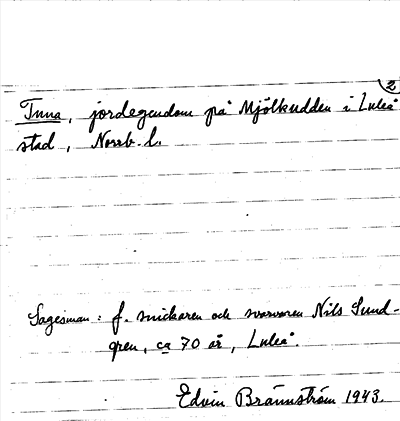 2
Tuna, jordegendom på Mjölkudden i Luleå
stad, Norrb. l.
Sagesman: f. snickaren och svarvaren Nils Sund-
gren, ca 70 år, Luleå.
Edvin Brännström 1943.